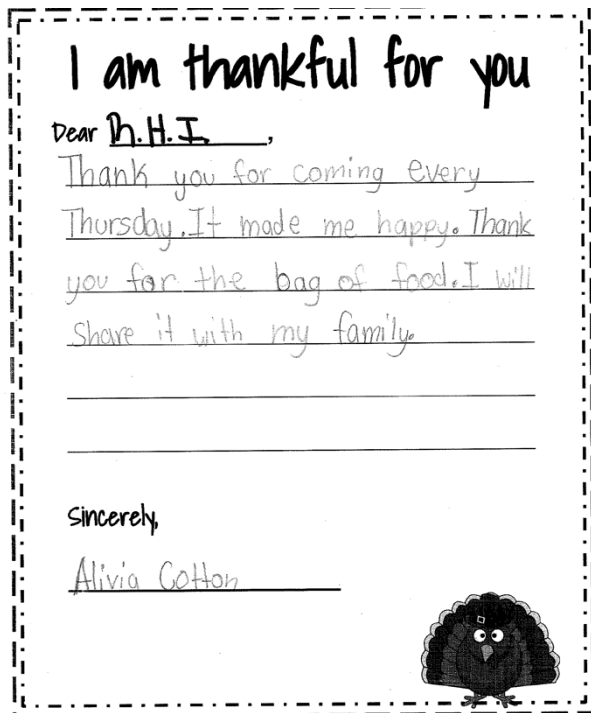 I am thankful for you
Dear M.H.I.,
Thank you for coming every
Thursday. It made me happy. Thank
you for the bag of food. I will
Share it with my family.
Sincerely,
Alivia Cotton